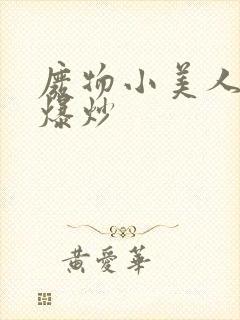 廢物小美人
爆炒
黃愛華